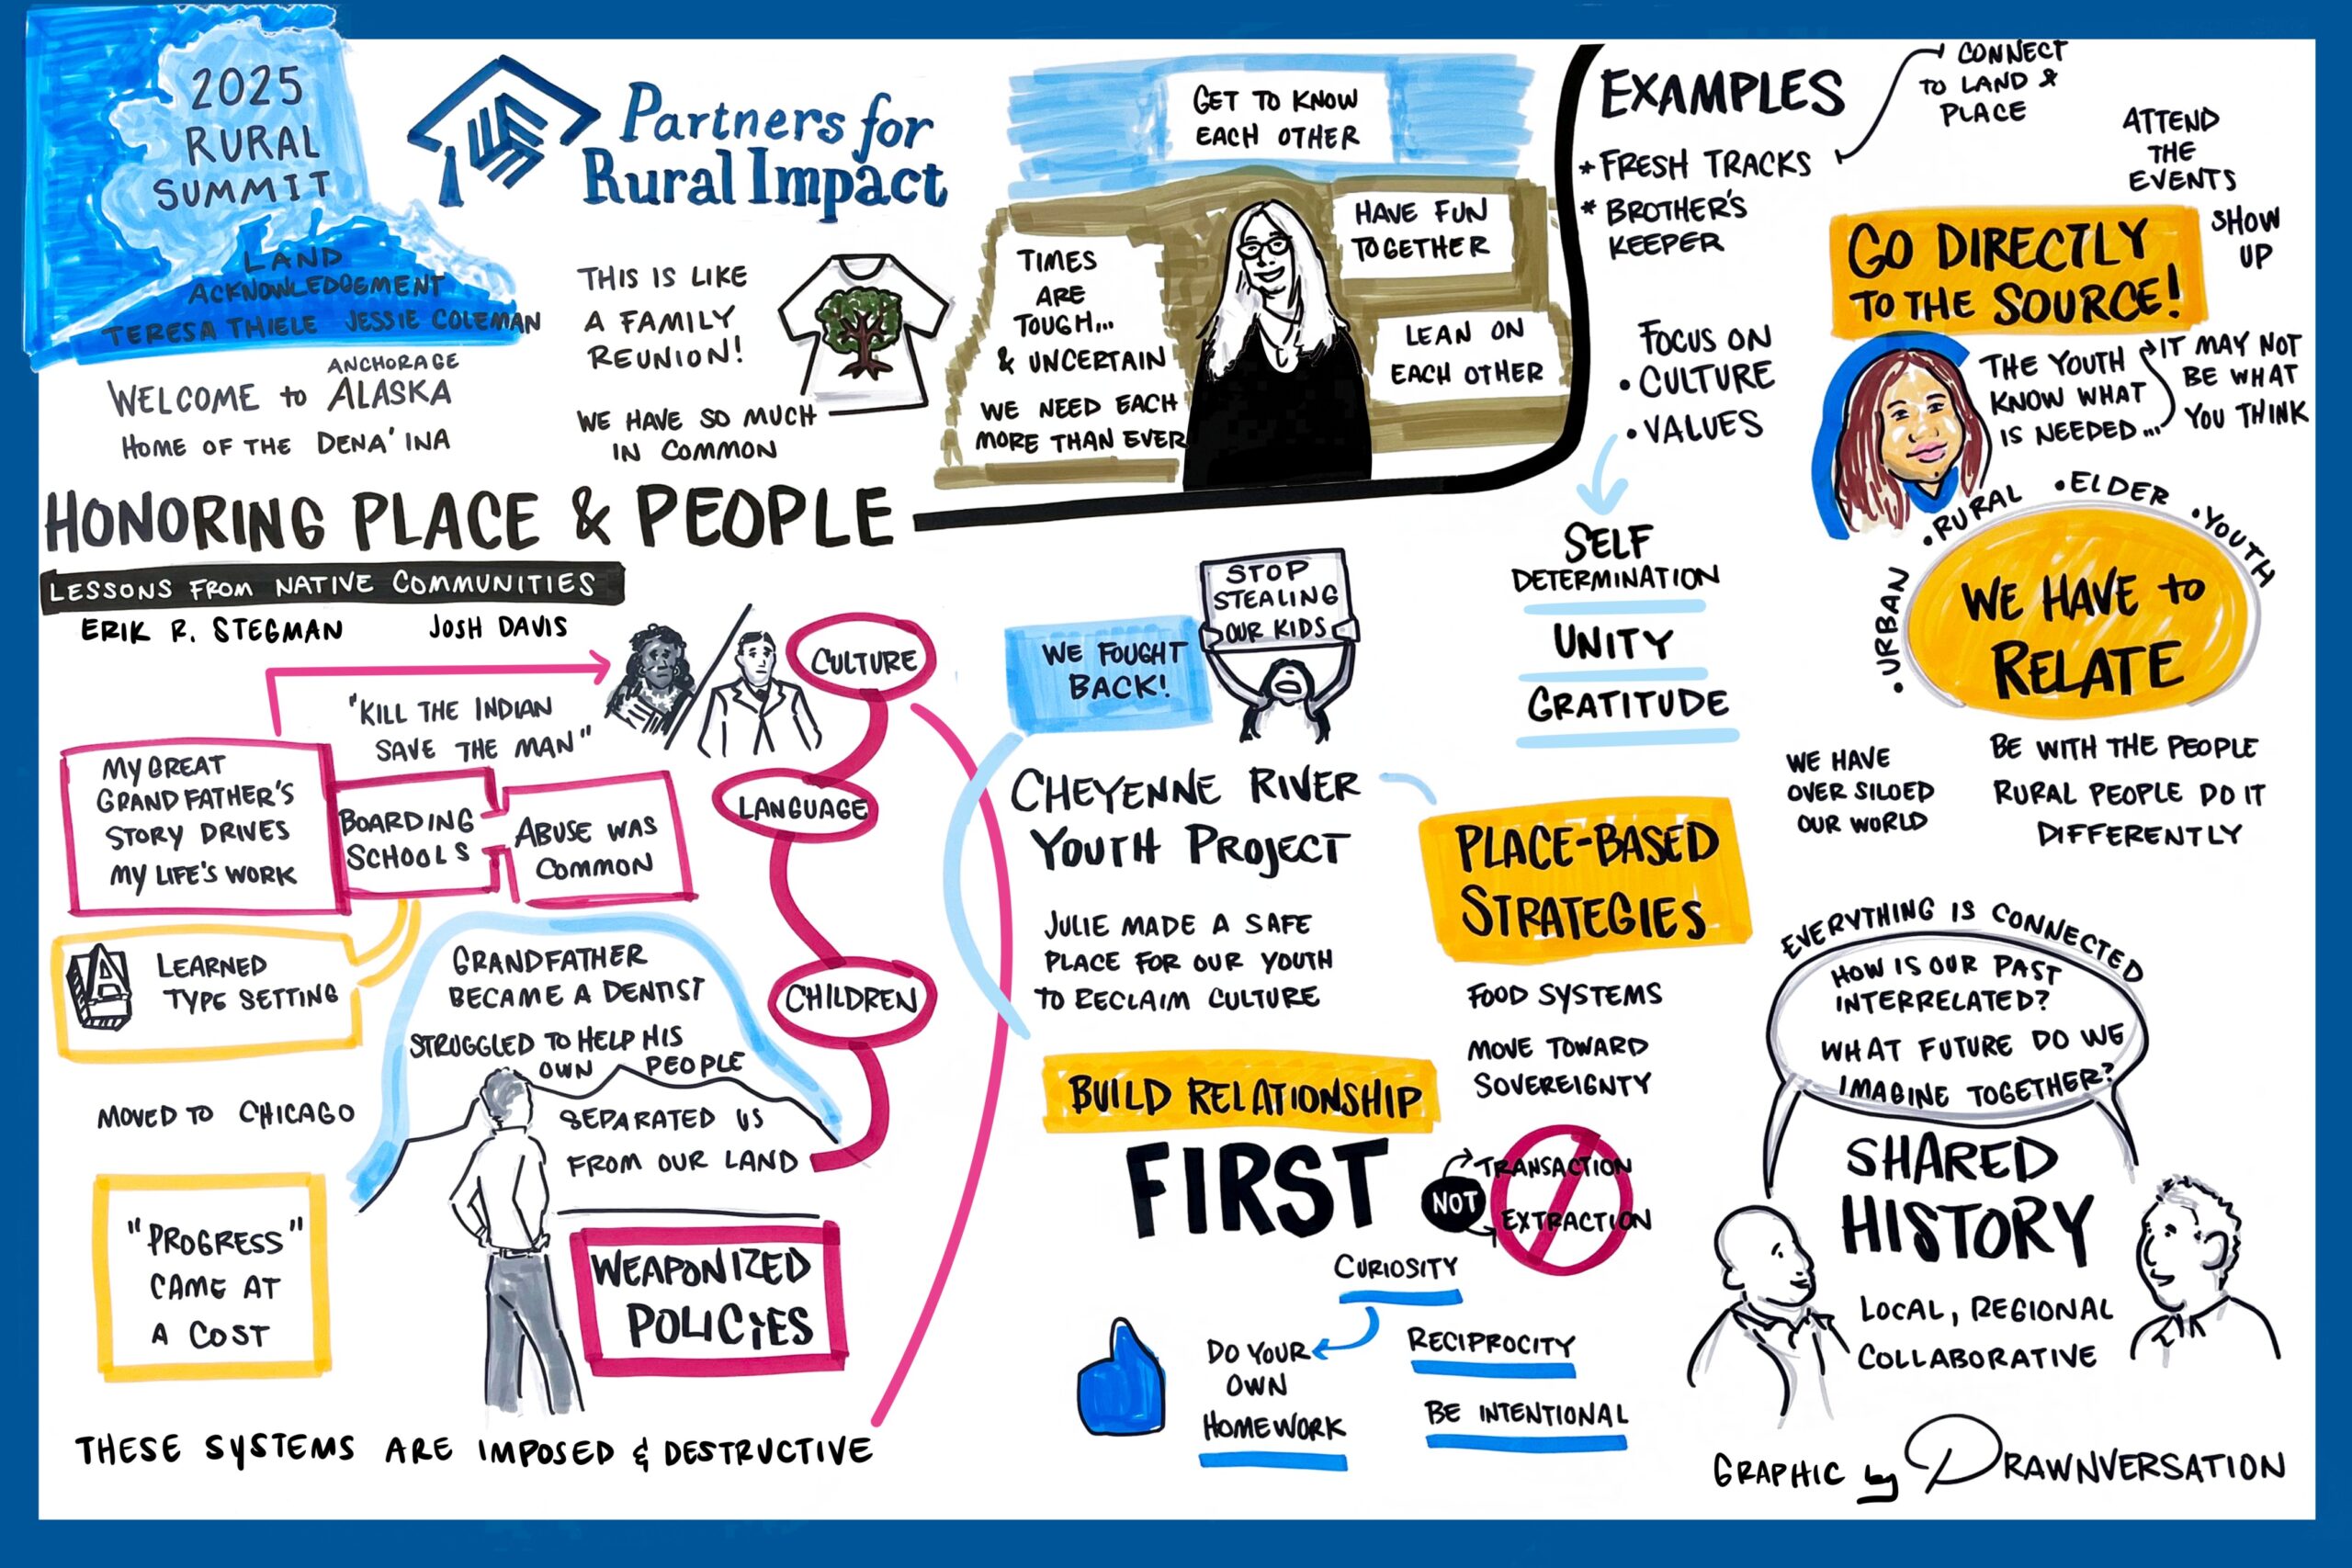 2025
RURAL
SUMMIT
LAND
ACKNOWLEDGEMENT
TERESA THIELE JESSIE COLEMAN
ANCHORAGE
WELCOME to ALASKA
HOME OF THE DENA'INA
Partners for
Rural Impact
THIS IS LIKE
A FAMILY
REUNION!
WE HAVE SO MUCH
IN COMMON
GET TO KNOW
EACH OTHER
TIMES
ARE
TOUGH...
& UNCERTAIN
WE NEED EACH
MORE THAN EVER
HAVE FUN
TOGETHER
LEAN ON
EACH OTHER
HONORING PLACE & PEOPLE
LESSONS FROM NATIVE COMMUNITIES
ERIK R. STEGMAN JOSH DAVIS
"KILL THE INDIAN
SAVE THE MAN"
MY GREAT
GRANDFATHER'S
STORY DRIVES
MY LIFE'S WORK
BOARDING
SCHOOLS
ABUSE WAS
COMMON
CULTURE
LANGUAGE
CHILDREN
A
LEARNED
TYPE SETTING
GRANDFATHER
BECAME A DENTIST
STRUGGLED TO HELP HIS
OWN PEOPLE
SEPARATED US
FROM OUR LAND
MOVED TO CHICAGO
"PROGRESS"
CAME AT
A COST
WEAPONIZED
POLICIES
THESE SYSTEMS ARE IMPOSED & DESTRUCTIVE
WE FOUGHT
BACK!
STOP
STEALING
OUR KIDS
CHEYENNE RIVER
YOUTH PROJECT
JULIE MADE A SAFE
PLACE FOR OUR YOUTH
TO RECLAIM CULTURE
BUILD RELATIONSHIP
FIRST
NOT
TRANSACTION
EXTRACTION
CURIOSITY
DO YOUR
OWN
HOMEWORK
RECIPROCITY
BE INTENTIONAL
EXAMPLES
* FRESH TRACKS
* BROTHER'S
KEEPER
CONNECT
TO LAND &
PLACE
FOCUS ON
• CULTURE
• VALUES
SELF
DETERMINATION
UNITY
GRATITUDE
PLACE-BASED
STRATEGIES
FOOD SYSTEMS
MOVE TOWARD
SOVEREIGNTY
ATTEND
THE
EVENTS
SHOW
UP
GO DIRECTLY
TO THE SOURCE!
THE YOUTH
KNOW WHAT
IS NEEDED...
IT MAY NOT
BE WHAT
YOU THINK
• URBAN • RURAL • ELDER • YOUTH
WE HAVE to
RELATE
WE HAVE
OVER SILOED
OUR WORLD
BE WITH THE PEOPLE
RURAL PEOPLE DO IT
DIFFERENTLY
EVERYTHING IS CONNECTED
HOW IS OUR PAST
INTERRELATED?
WHAT FUTURE DO WE
IMAGINE TOGETHER?
SHARED
HISTORY
LOCAL, REGIONAL
COLLABORATIVE
GRAPHIC by DRAWNVERSATION